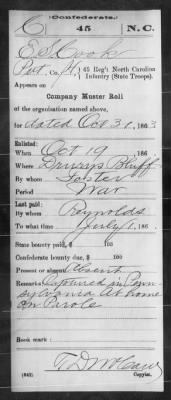 Confederate.
C 45 N.C.
E S Cook
Pvt, Co. H, 45 Reg't North Carolina
Infantry (State Troops).
Appears on
Company Muster Roll
of the organization named above,
for dated Oct 31, 1863
Enlisted:
When Oct 19, 186
Where Drurys Bluff
By whom Foster
Period War
Last paid:
By whom Reynolds
To what time July 1, 186
State bounty paid, $ 100
Confederate bounty due, $ 100
Present or absent Absent
Remarks: Captured in Penn-
sylvania At home
on Parole
Book mark:
(642) Copyist.